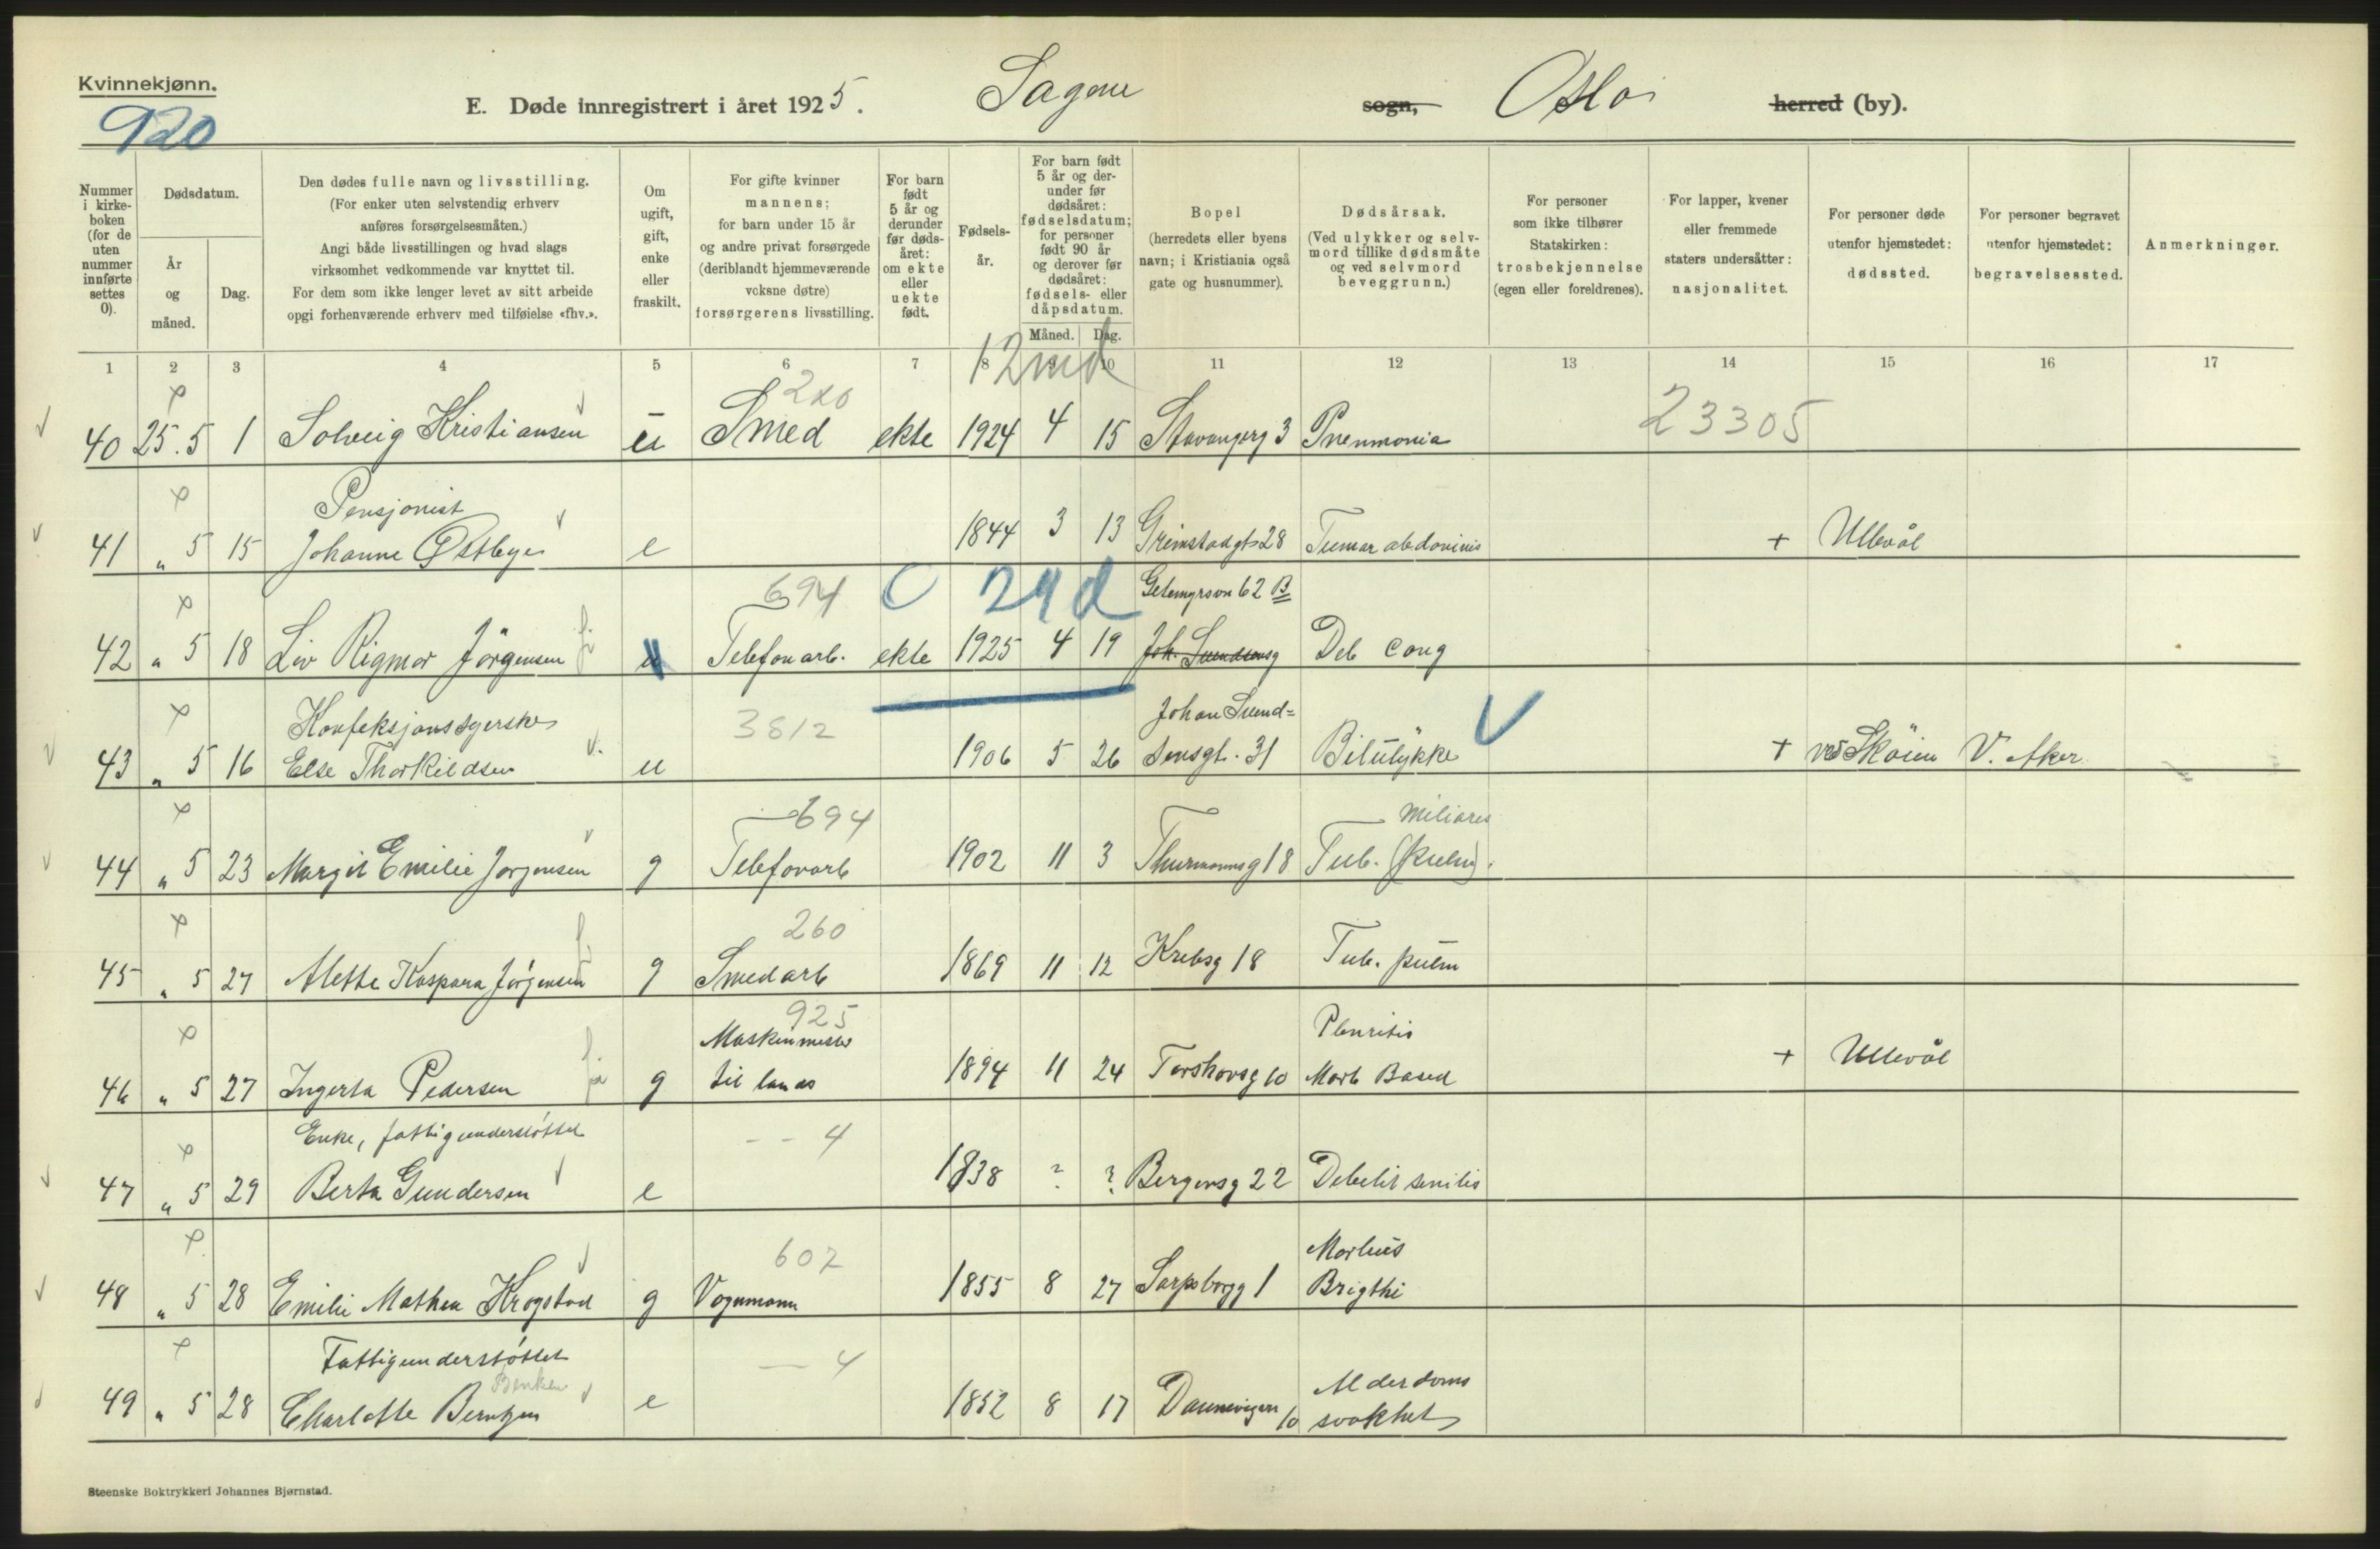 Kvinnekjønn.
920
E. Døde innregistrert i året 1925. Sagene sogn, Oslo herred (by).
Nummer i kirkeboken (for de uten nummer innførte settes 0).
Dødsdatum.
År og måned.
Dag.
Den dødes fulle navn og livsstilling.
(For enker uten selvstendig erhverv
anføres forsørgelsesmåten.)
Angi både livsstillingen og hvad slags
virksomhet vedkommende var knyttet til.
For dem som ikke lenger levet av sitt arbeide
opgi forhenværende erhverv med tilføielse «fhv.».
Om ugift, gift, enke eller fraskilt.
For gifte kvinner
mannens;
for barn under 15 år
og andre privat forsørgede
(deriblandt hjemmeværende
voksne døtre)
forsørgerens livsstilling.
For barn født 5 år og derunder før dødsåret: om ekte eller uekte født.
Fødselsår.
For barn født 5 år og derunder før dødsåret: fødselsdatum; for personer født 90 år og derover før dødsåret: fødsels- eller dåpsdatum.
Måned. Dag.
Bopel
(herredets eller byens
navn; i Kristiania også
gate og husnummer).
Dødsårsak.
(Ved ulykker og selvmord tillike dødsmåte
og ved selvmord
beveggrunn.)
For personer
som ikke tilhører
Statskirken:
trosbekjennelse
(egen eller foreldrenes).
For lapper, kvener
eller fremmede
staters undersåtter:
nasjonalitet.
For personer døde
utenfor hjemstedet:
dødssted.
For personer begravet
utenfor hjemstedet:
begravelsessted.
Anmerkninger.
1 2 3 4 5 6 7 8 9 10 11 12 13 14 15 16 17
12 md
23305
40 25.5 1 Solveig Kristiansen u Smed ekte 1924 4 15 Stavangerg 3 Pneumonia
Pensjonist
41 " 5 15 Johanne Østbye e 1844 3 13 Grimstadgt 28 Tumor abdominis + Ullevål
694 29 d Geitemyrsvn 62 B
42 " 5 18 Liv Rigmor Jörgensen u Telefonarb. ekte 1925 4 19 Joh. Svendsensg Deb cong
Konfeksjonssyerske 3812 Johan Svend=
43 " 5 16 Else Thorkildsen u 1906 5 26 sensgt. 31 Bilulykke + ved Skøien V. Aker
694 miliares
44 " 5 23 Margit Emilie Jørgensen g Telefonarb 1902 11 3 Thurmannsg 18 Tub. (pulm).
260
45 " 5 27 Alette Kaspara Jørgensen g Smedarb 1869 11 12 Krebsg 18 Tub. pulm
925
Maskinmester Pleuritis
46 " 5 27 Ingerta Pedersen g til lands 1894 11 24 Torshovsg 10 Morb Based + Ullevål
Enke, fattigunderstøttet -- 4
47 " 5 29 Berta Gundersen e 1838 ? ? Bergensg 22 Debilit senilis
602 Morbus
48 " 5 28 Emilie Mathea Krogstad g Vognmann 1855 8 27 Sarpsborgg 1 Brigthi
Fattigunderstøttet — 4 Alderdoms
49 " 5 28 Charlotte Berntzen e 1852 8 17 Dannevigsvn 10 svakhet
Steenske Boktrykkeri Johannes Bjørnstad.